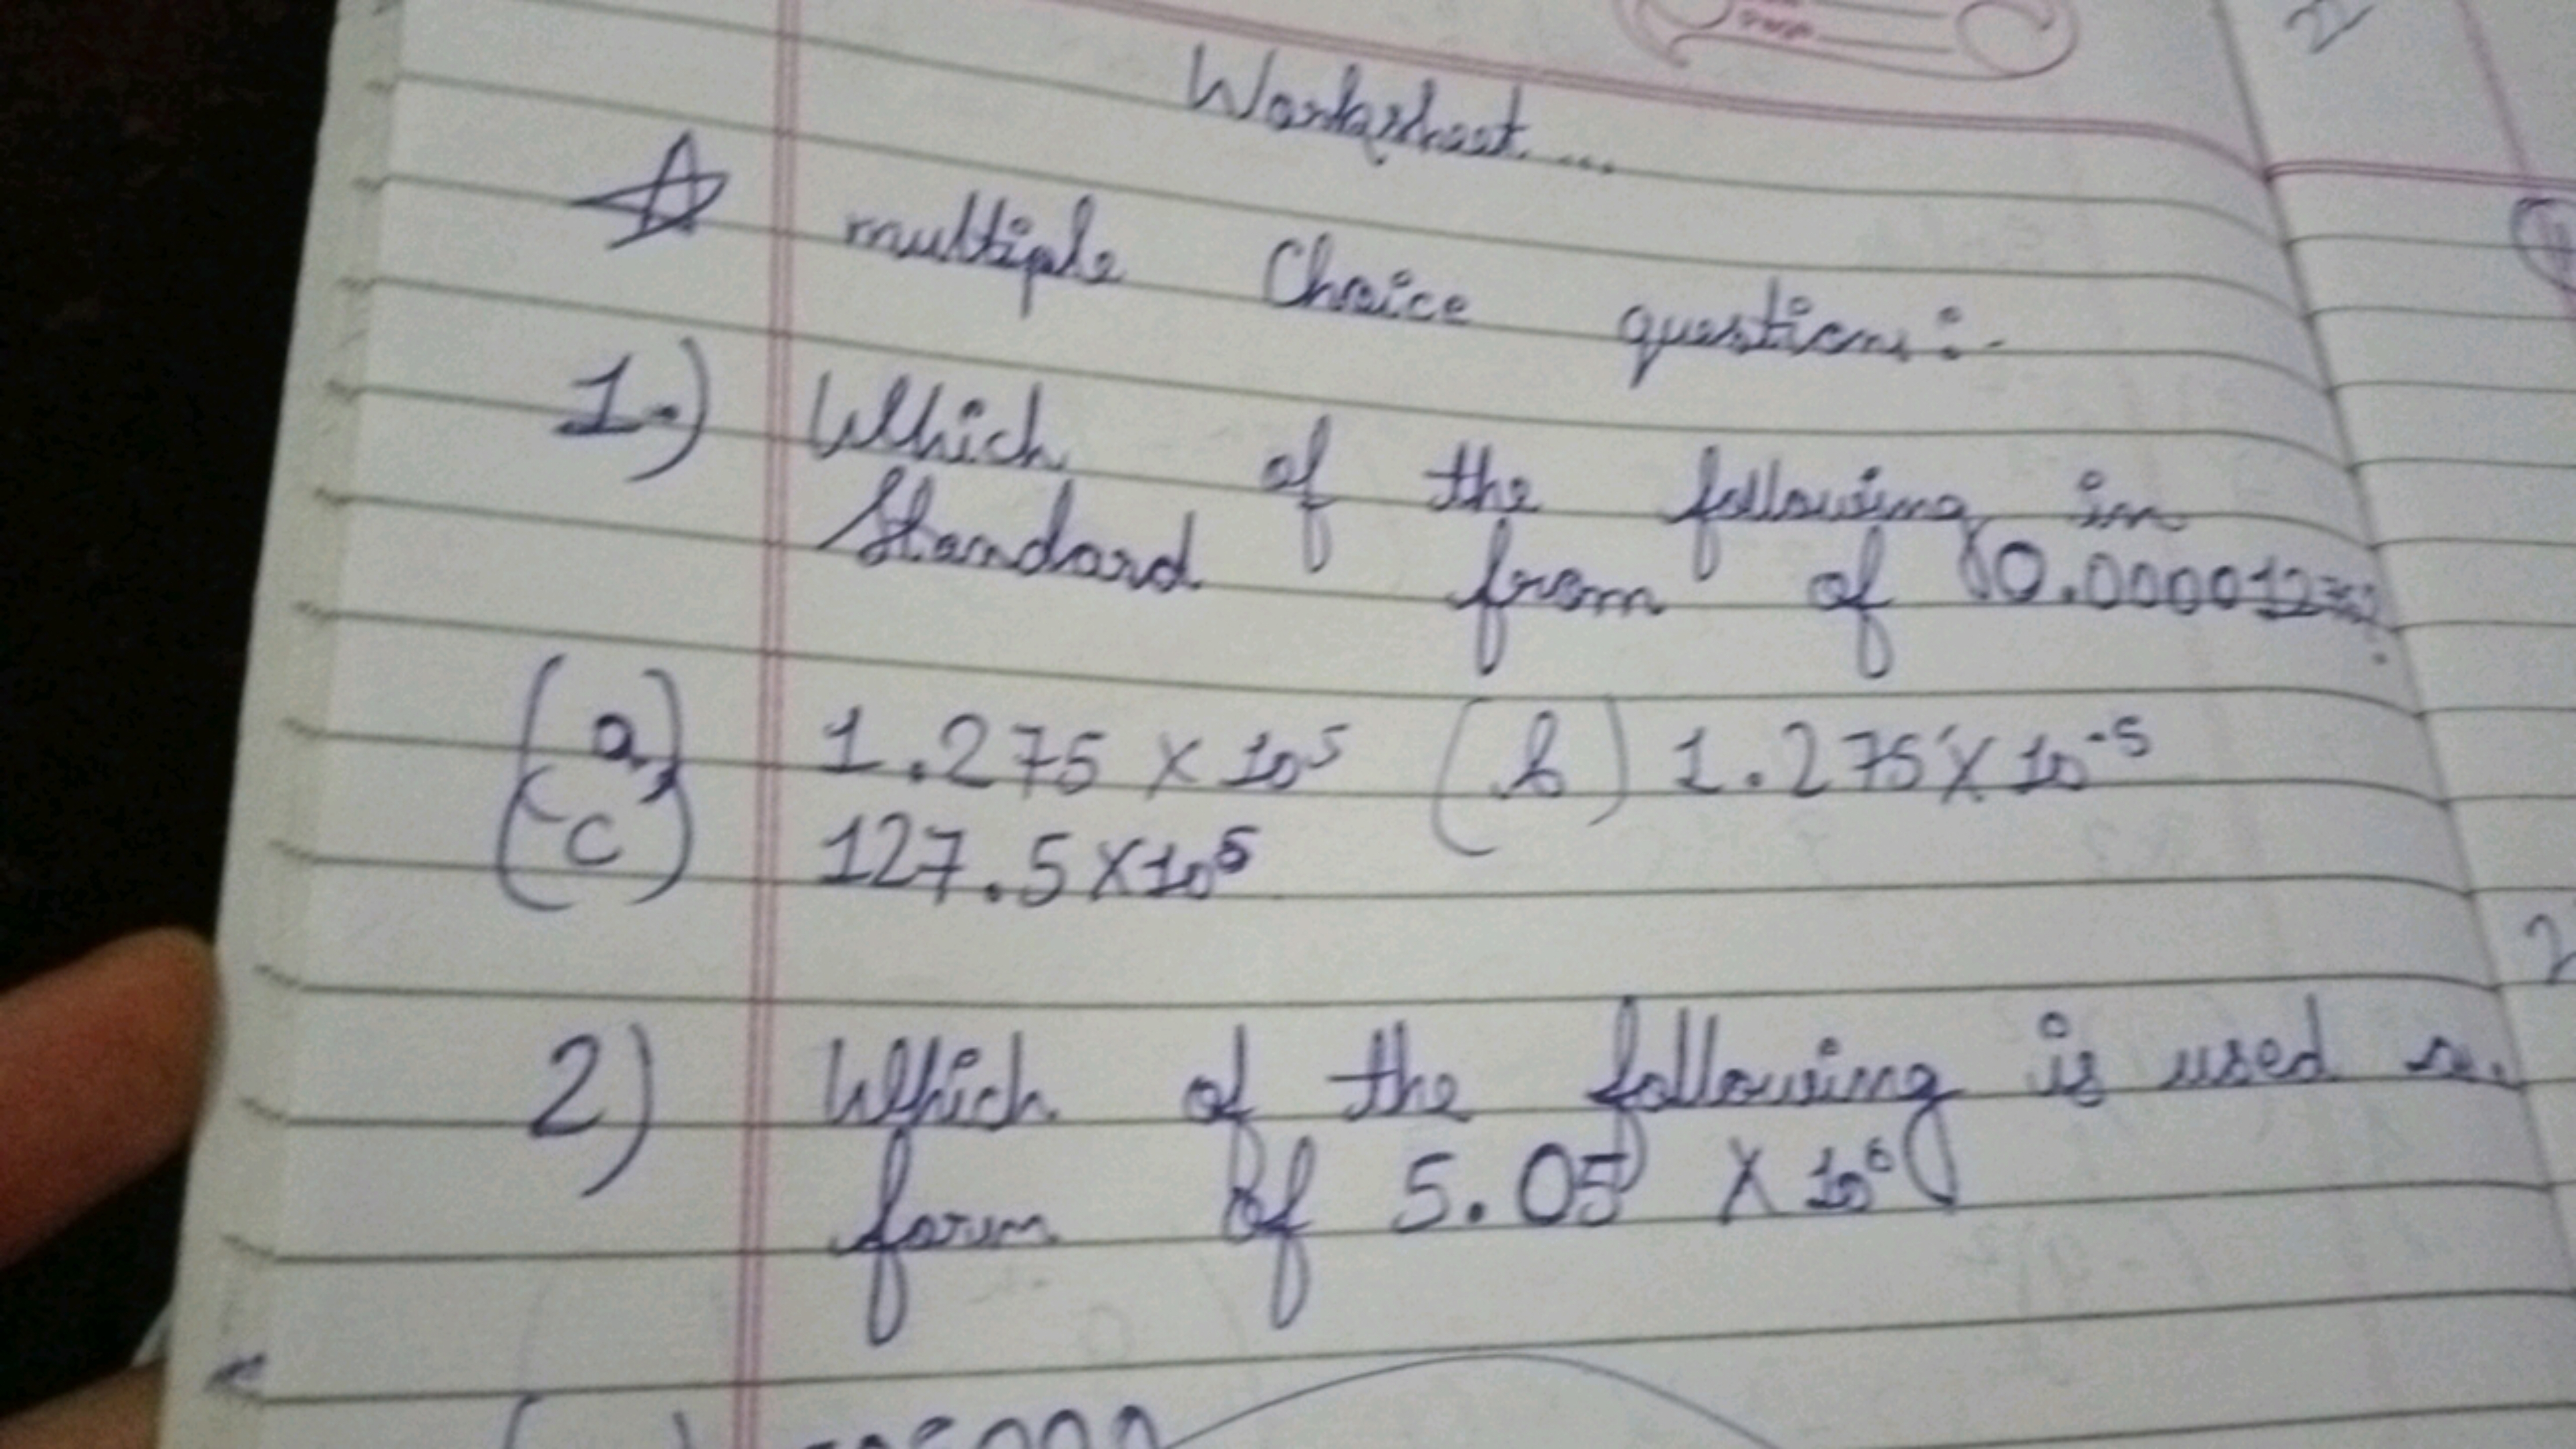 Worksheet...
multiple Choice questions:-
1.) Which of the following in
Standard from of 0.000012
(a) 1.275 X 10⁵ (b) 1.275 X 10⁻⁵
(c) 127.5 X 10⁵
2) Which of the following is used
form of 5.05 X 10⁶